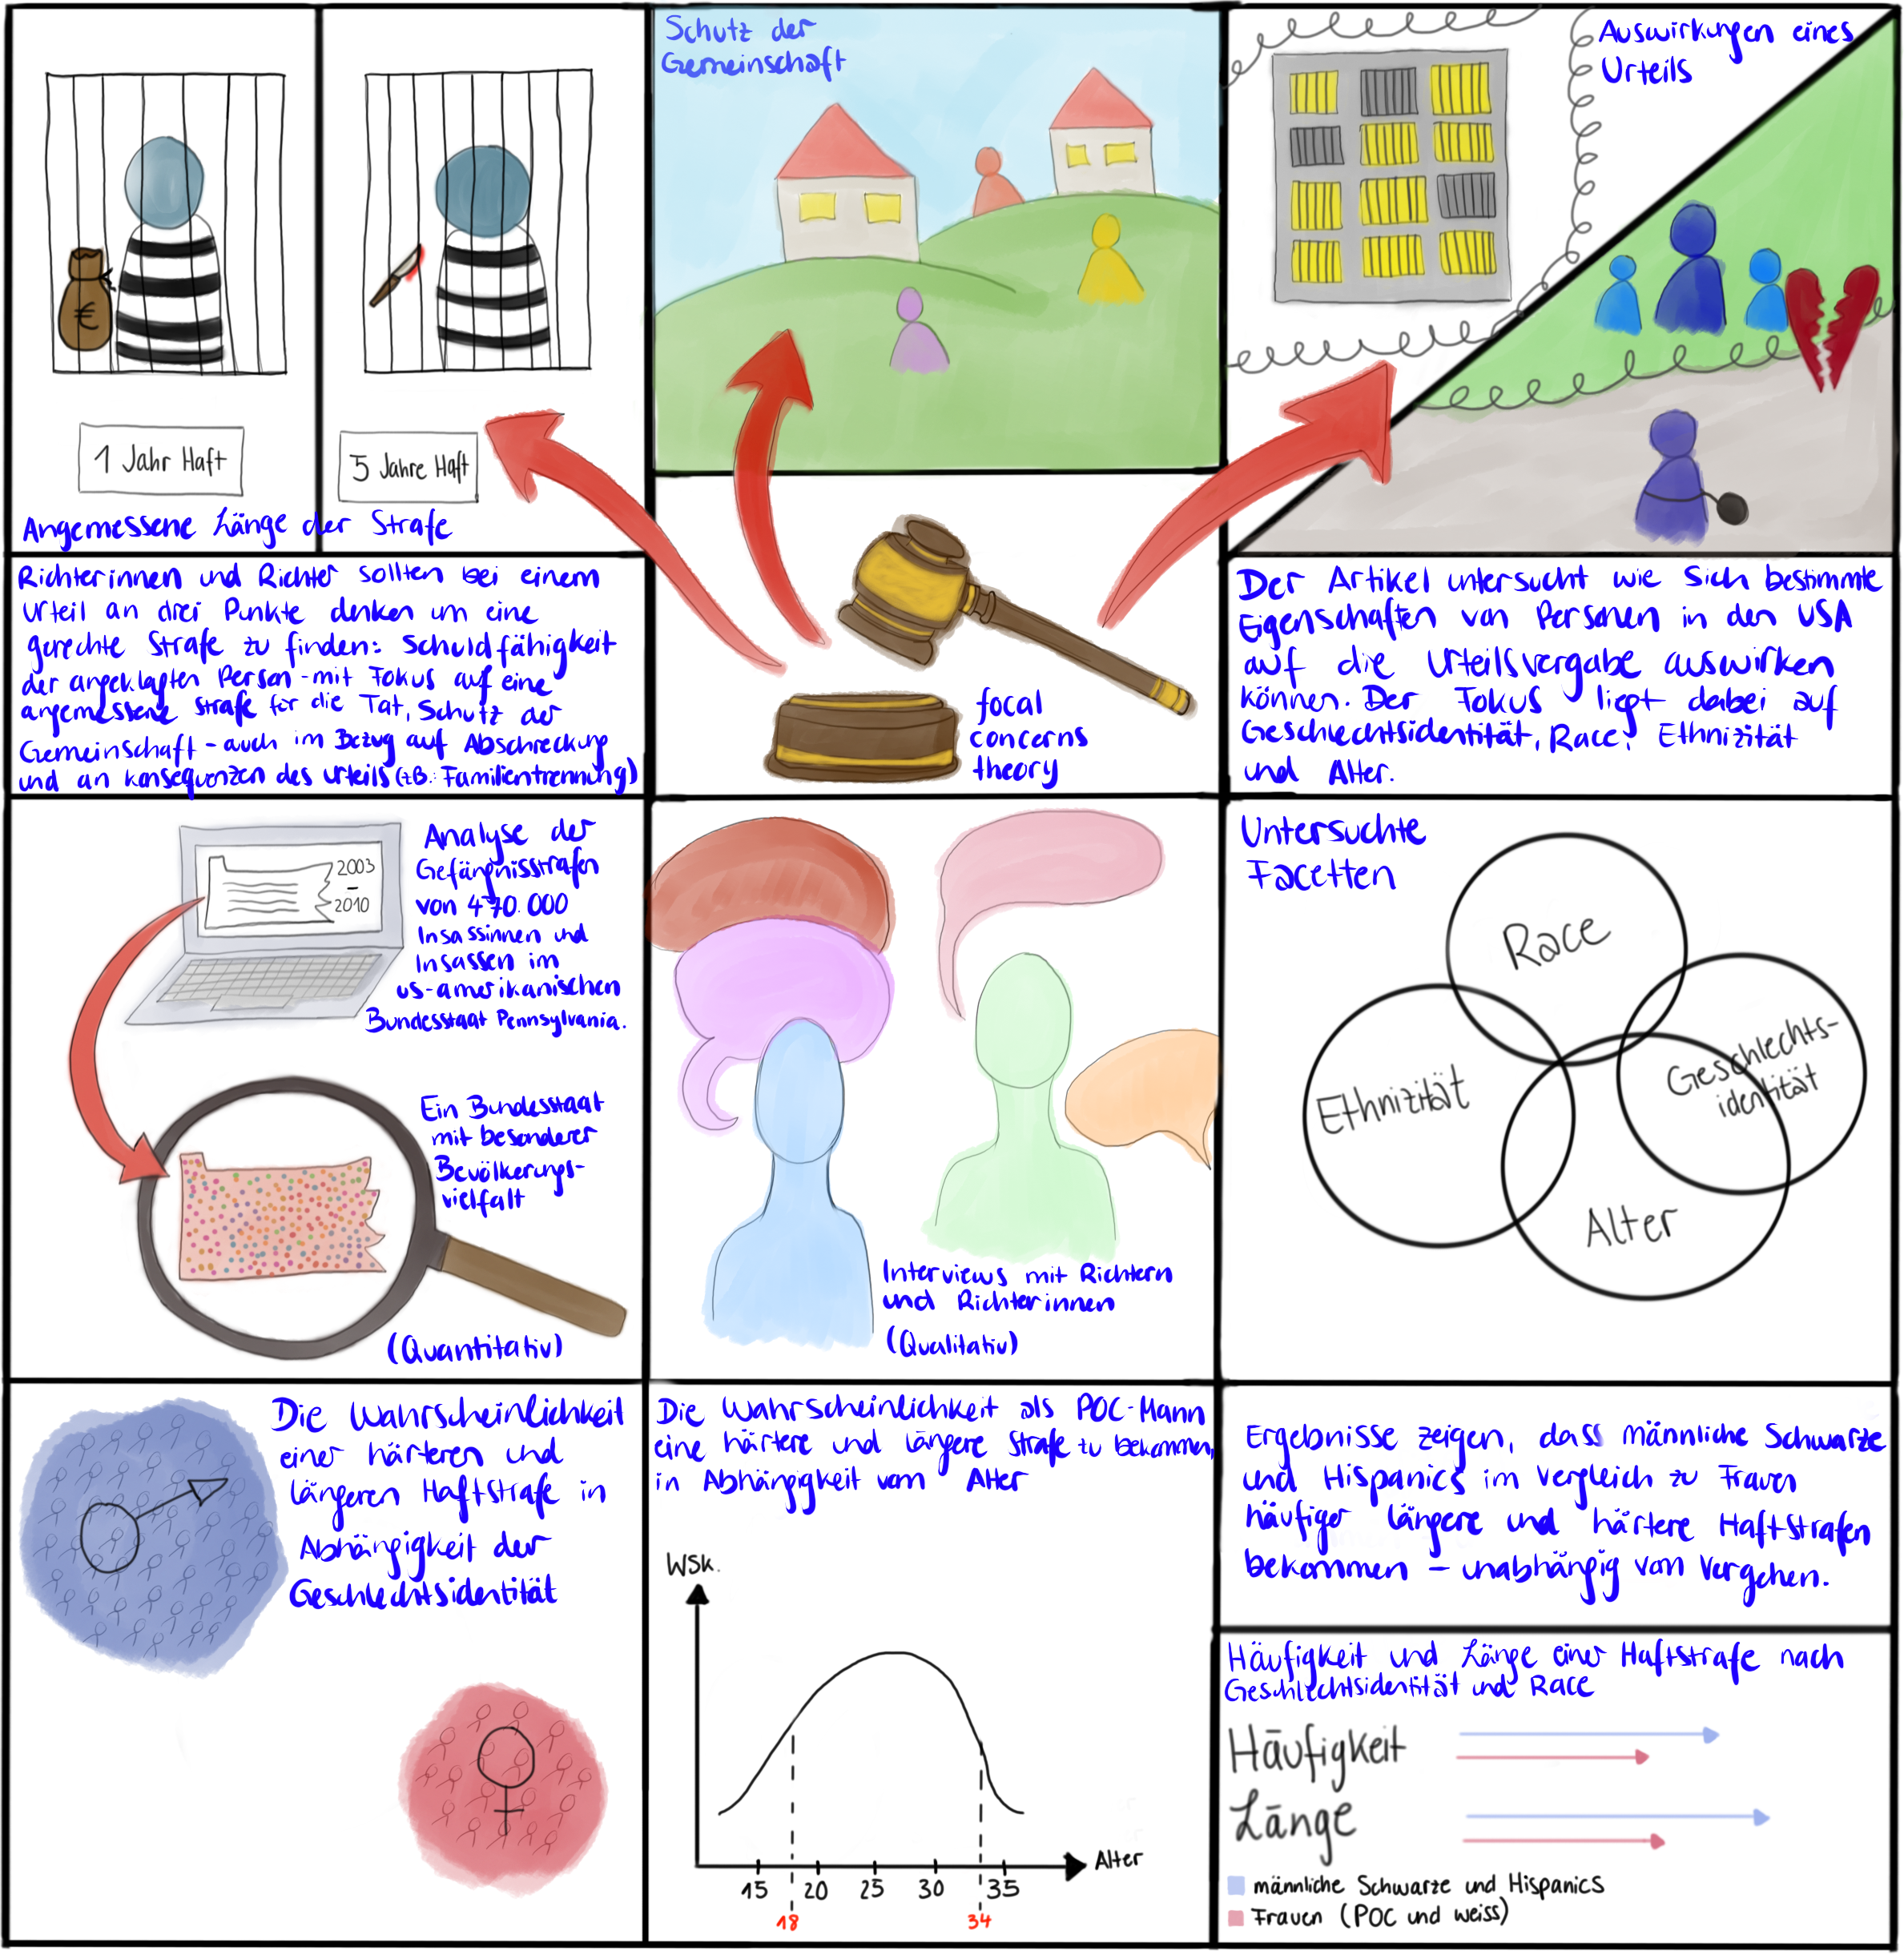 €
1 Jahr Haft
5 Jahre Haft
Angemessene Länge der Strafe
Schutz der
Gemeinschaft
Auswirkungen eines
Urteils
Richterinnen und Richter sollten bei einem
Urteil an drei Punkte denken um eine
gerechte Strafe zu finden: Schuldfähigkeit
der angeklagten Person - mit Fokus auf eine
angemessene Strafe für die Tat, Schutz der
Gemeinschaft - auch im Bezug auf Abschreckung
und an Konsequenzen des Urteils (z.B.: Familientrennung)
focal
concerns
theory
Der Artikel untersucht wie sich bestimmte
Eigenschaften von Personen in den USA
auf die Urteilsvergabe auswirken
können. Der Fokus liegt dabei auf
Geschlechtsidentität, Race, Ethnizität
und Alter.
2003
-
2010
Analyse der
Gefängnisstrafen
von 470.000
Insassinnen und
Insassen im
us-amerikanischen
Bundesstaat Pennsylvania.
Ein Bundesstaat
mit besonderer
Bevölkerungs-
vielfalt
(Quantitativ)
Interviews mit Richtern
und Richterinnen
(Qualitativ)
Untersuchte
Facetten
Race
Ethnizität
Geschlechts-
identität
Alter
Die Wahrscheinlichkeit
einer härteren und
längeren Haftstrafe in
Abhängigkeit der
Geschlechtsidentität
Die Wahrscheinlichkeit als POC-Mann
eine härtere und längere Strafe zu bekommen,
in Abhängigkeit vom Alter
Wsk.
Alter
15 20 25 30 35
18 34
Ergebnisse zeigen, dass männliche Schwarze
und Hispanics im Vergleich zu Frauen
häufiger längere und härtere Haftstrafen
bekommen - unabhängig vom Vergehen.
Häufigkeit und Länge einer Haftstrafe nach
Geschlechtsidentität und Race
Häufigkeit
Länge
männliche Schwarze und Hispanics
Frauen (POC und weiss)